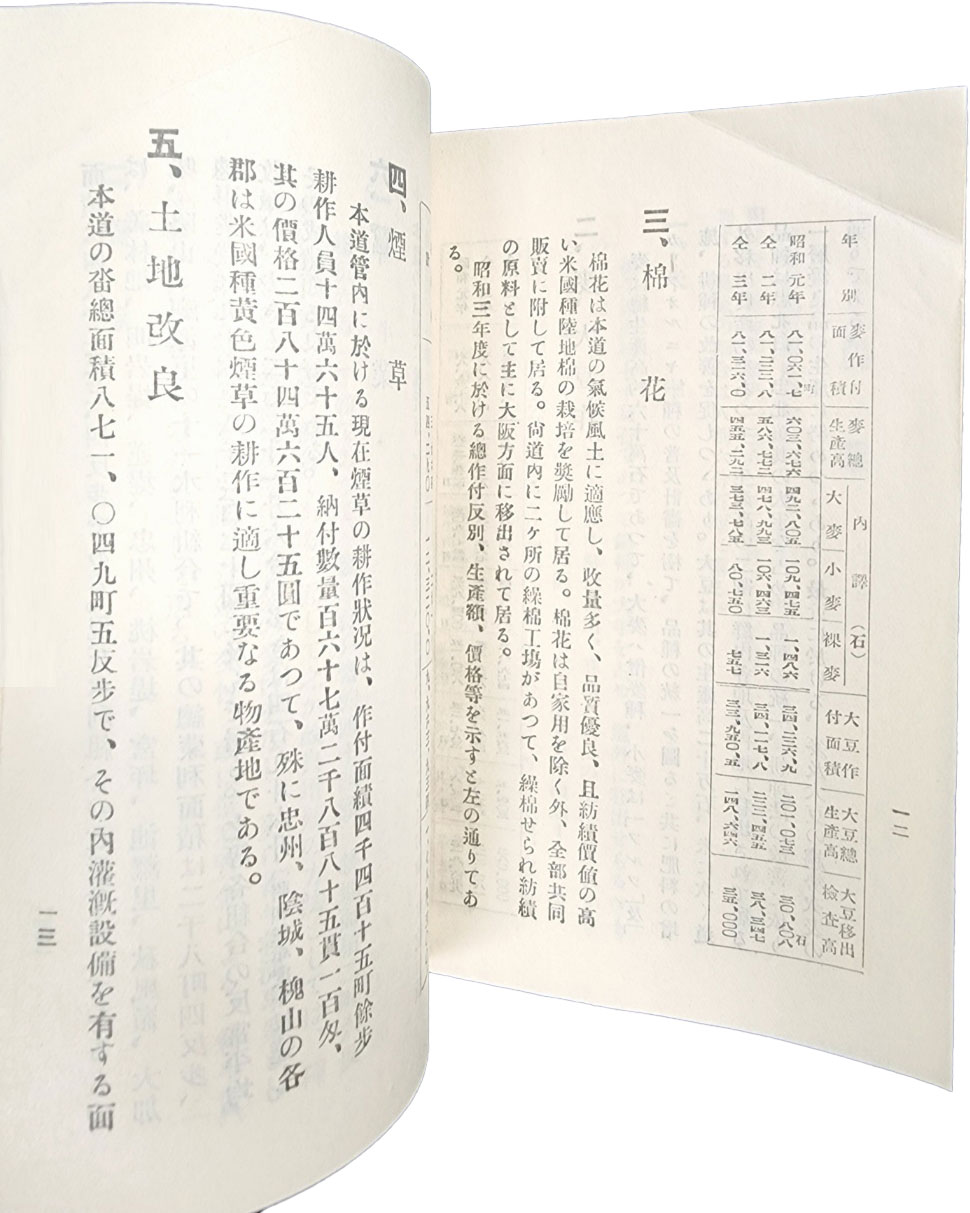 年別 麥作付面積 麥總生產高 內譯(石) 大麥 小麥 裸麥 大豆作付面積 大豆總生產高 大豆移出檢查高
昭和元年 八一、〇六一、七町 六〇三、六七六 四九二、八〇五 一〇九、四七五 一、四八六 三四、二三六、九 二〇一、〇七三 三〇、八〇八石
仝二年 八一、二三二、八 五八六、七七二 四七八、九九三 一〇六、四六三 一、三一六 三四、一一七、八 二三二、四五五 三八、三四七
仝三年 八一、三一六、〇 四五五、二九二 三七三、七八五 八〇、七五〇 七五七 三三、九五〇、五 一四八、六四六 三五、〇〇〇
三、棉花
棉花は本道の氣候風土に適應し、收量多く、品質優良、且紡績價値の高
い米國種陸地棉の栽培を奬勵して居る。棉花は自家用を除く外、全部共同
販賣に附して居る。尙道內に二ヶ所の繰棉工場があつて、繰棉せられ紡績
の原料として主に大阪方面に移出されて居る。
昭和三年度に於ける總作付反別、生產額、價格等を示すと左の通りであ
る。
一二
四、煙草
本道管內に於ける現在煙草の耕作狀況は、作付面績四千四百十五町餘步
耕作人員十四萬六十五人、納付數量百六十七萬二千八百八十五貫一百匁、
其の價格二百八十四萬六百二十五圓であつて、殊に忠州、陰城、槐山の各
郡は米國種黃色煙草の耕作に適し重要なる物產地である。
五、土地改良
本道の畓總面積八七一、〇四九町五反步で、その內灌漑設備を有する面
一三